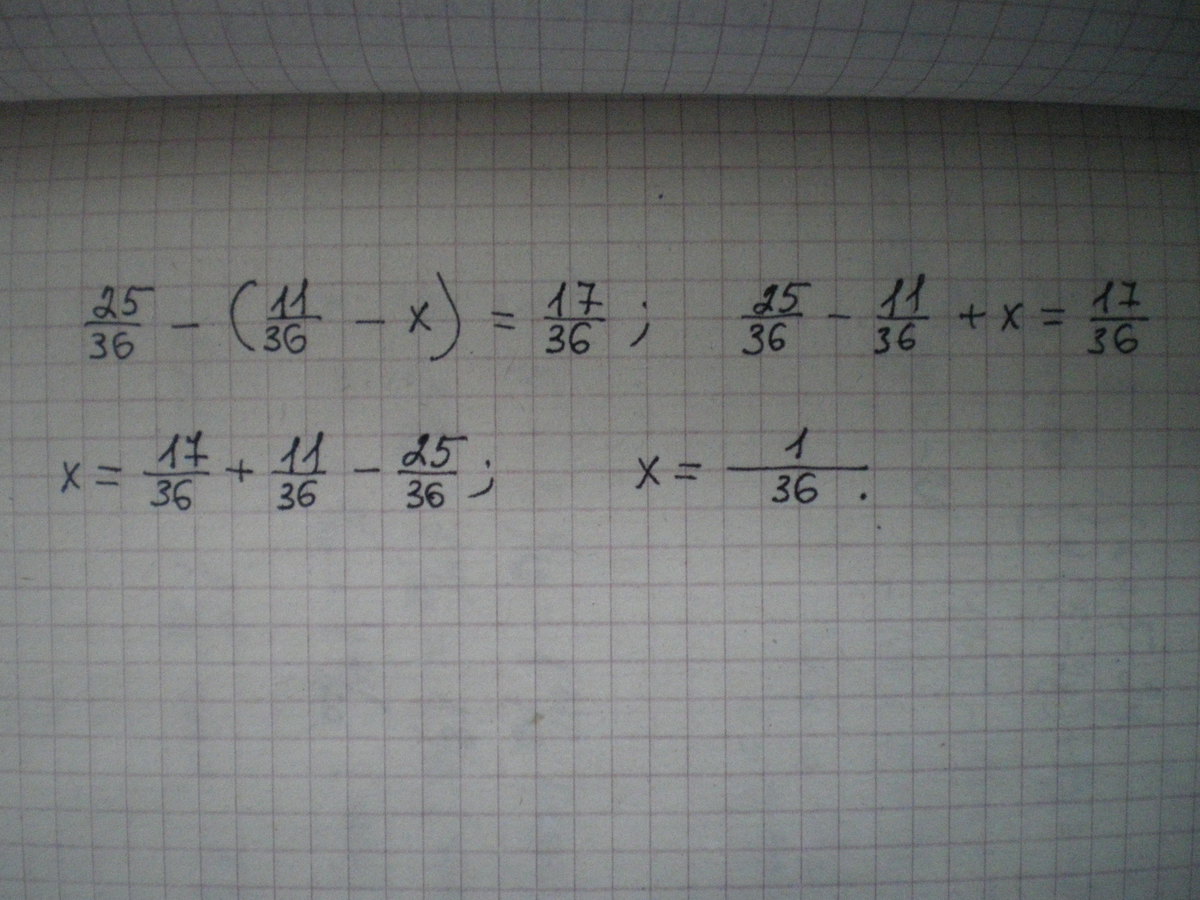 25/36 - (11/36 - x) = 17/36 ; 25/36 - 11/36 + x = 17/36
x = 17/36 + 11/36 - 25/36 ; x = 1/36 .